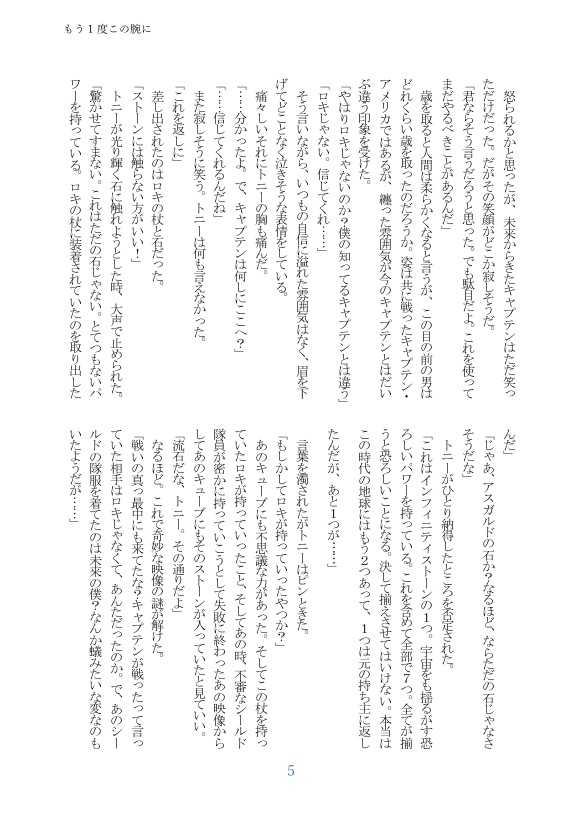 もう１度この腕に
　怒られるかと思ったが、未来からきたキャプテンはただ笑っ
ただけだった。だがその笑顔がどこか寂しそうだ。
「君ならそう言うだろうと思った。でも駄目だよ。これを使って
まだやるべきことがあるんだ」
　歳を取ると人間は柔らかくなると言うが、この目の前の男は
どれくらい歳を取ったのだろうか。姿は共に戦ったキャプテン・
アメリカではあるが、纏った雰囲気が今のキャプテンとはだい
ぶ違う印象を受けた。
「やはりロキじゃないのか？僕の知ってるキャプテンとは違う」
「ロキじゃない。信じてくれ……」
　そう言いながら、いつもの自信に溢れた雰囲気はなく、眉を下
げてどことなく泣きそうな表情をしている。
　痛々しいそれにトニーの胸も痛んだ。
「……分かったよ。で、キャプテンは何しにここへ？」
「……信じてくれるんだね」
　また寂しそうに笑う。トニーは何も言えなかった。
「これを返しに」
　差し出されたのはロキの杖と石だった。
「ストーンには触らない方がいい！」
　トニーが光り輝く石に触れようとした時、大声で止められた。
「驚かせてすまない。これはただの石じゃない。とてつもないパ
ワーを持っている。ロキの杖に装着されていたのを取り出した
んだ」
「じゃあ、アスガルドの石か？なるほど、ならただの石じゃなさ
そうだな」
　トニーがひとり納得したところを否定された。
「これはインフィニティストーンの１つ。宇宙をも揺るがす恐
ろしいパワーを持っている。これを含めて全部で７つ。全てが揃
うと恐ろしいことになる。決して揃えさせてはいけない。本当は
この時代の地球にはもう２つあって、１つは元の持ち主に返し
たんだが、あと１つが……」
　言葉を濁されたがトニーはピンときた。
「もしかしてロキが持っていったやつか？」
　あのキューブにも不思議な力があった。そしてこの杖を持っ
ていたロキが持っていったこと、そしてあの時、不審なシールド
隊員が密かに持っていこうとして失敗に終わったあの映像から
してあのキューブにもそのストーンが入っていたと見ていい。
「流石だな、トニー。その通りだよ」
　なるほど。これで奇妙な映像の謎が解けた。
「戦いの真っ最中にも来てたな？キャプテンが戦ったって言っ
ていた相手はロキじゃなくて、あんただったのか。で、あのシー
ルドの隊服を着てたのは未来の僕？なんか蟻みたいな変なのも
いたようだが……」
5